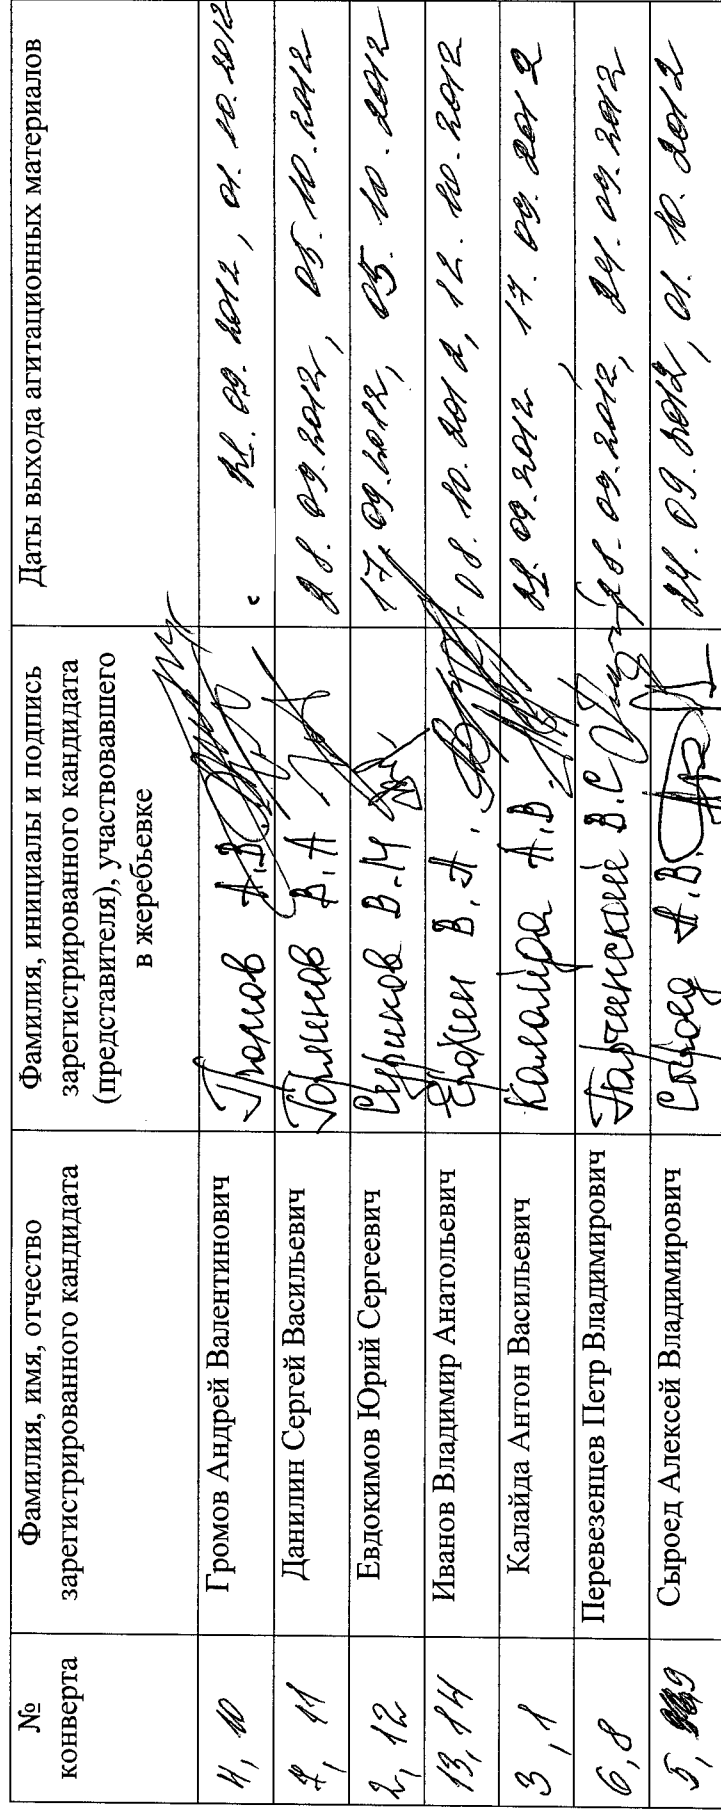 №
конверта
Фамилия, имя, отчество
зарегистрированного кандидата
Фамилия, инициалы и подпись
зарегистрированного кандидата
(представителя), участвовавшего
в жеребьевке
Даты выхода агитационных материалов
4, 10 Громов Андрей Валентинович Громов А.В. 21.09.2012, 01.10.2012
7, 11 Данилин Сергей Васильевич В.А 28.09.2012, 05.10.2012
2, 12 Евдокимов Юрий Сергеевич Суриков В.М 17.09.2012, 05.10.2012
13, 14 Иванов Владимир Анатольевич В.А. 08.10.2012, 12.10.2012
3, 1 Калайда Антон Васильевич Калайда А.В. 21.09.2012, 17.09.2012
6, 8 Перевезенцев Петр Владимирович В.С 28.09.2012, 24.09.2012
5, 9 Сыроед Алексей Владимирович Сыроед А.В. 24.09.2012, 01.10.2012